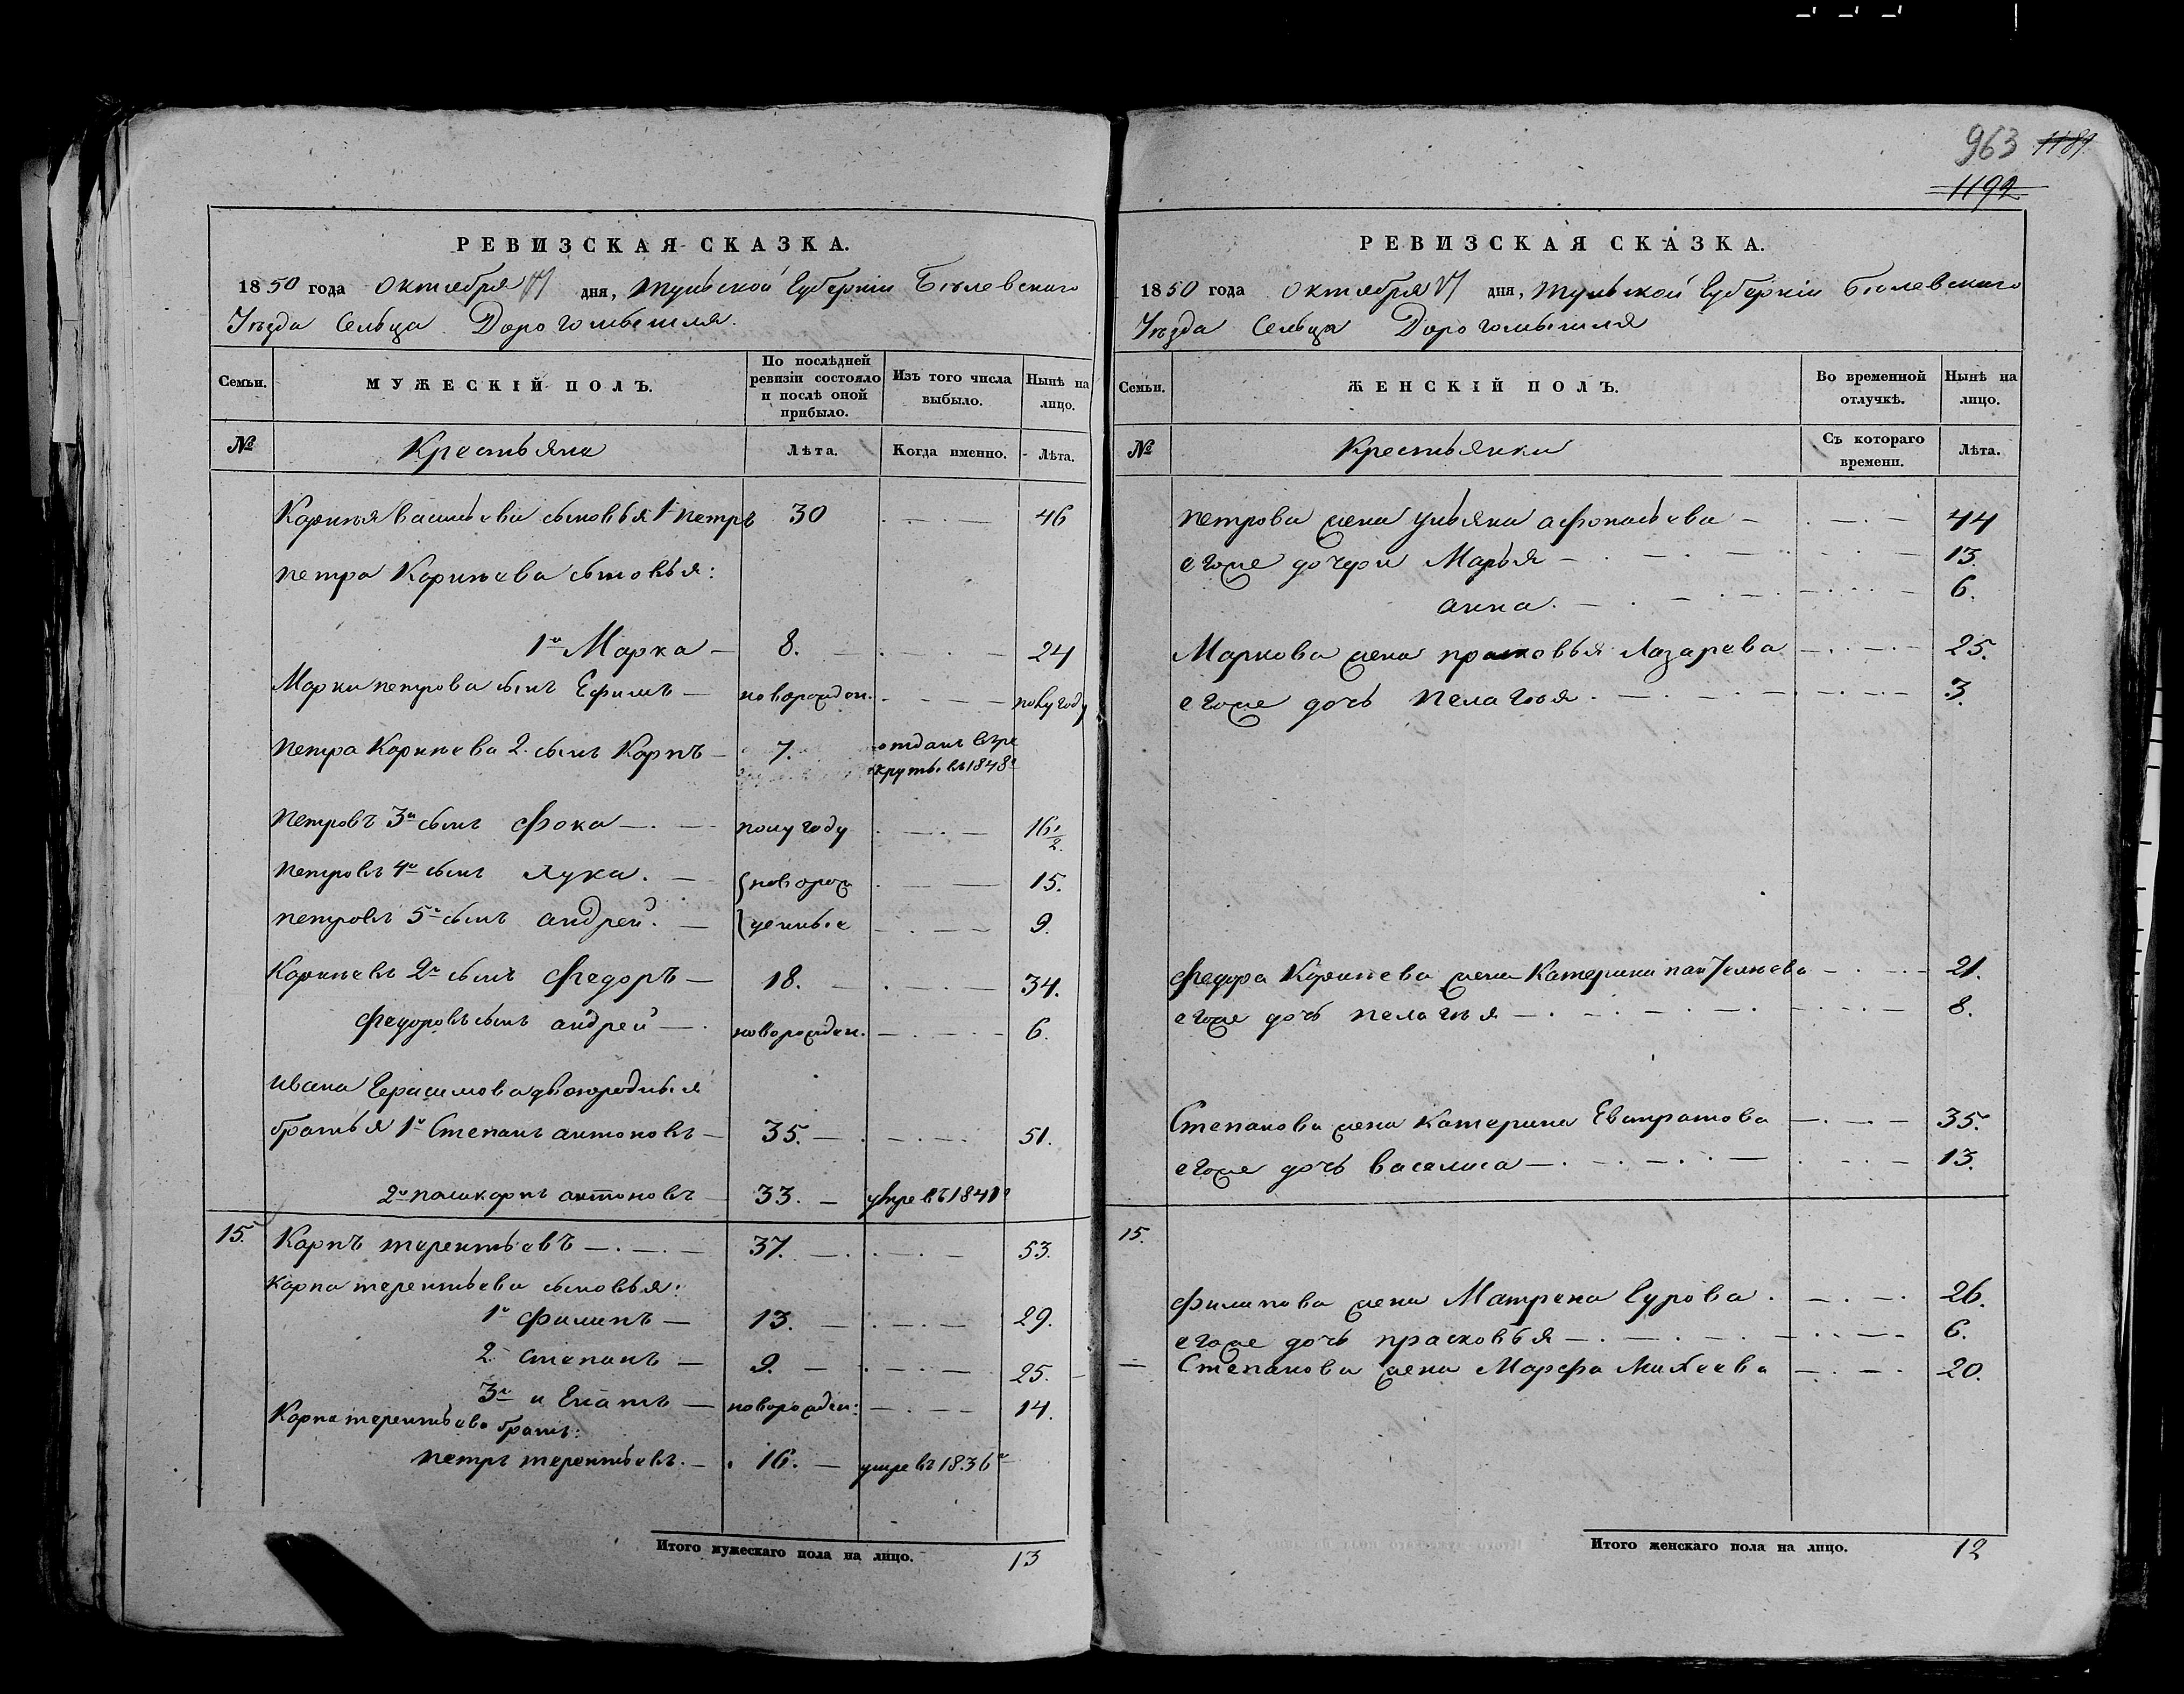 963 1189
1192
РЕВИЗСКАЯ СКАЗКА.
1850 года Октября дня, Тульской Губерніи Бѣлевскаго
Уѣзда Сельца Дорогомышля.
Семьи. МУЖЕСКІЙ ПОЛЪ. По послѣдней ревизіи состояло и послѣ оной прибыло. Изъ того числа выбыло. Нынѣ на лицо.
№ Крестьяне Лѣта. Когда именно. Лѣта.
Васильева сыновья 1 Петръ 30 46
Петра сыновья:
1й Марка 8. 24
Марки Петрова сынъ Ефимъ новорожден. полугоду
Петра 2. сынъ Карпъ 7. отданъ върекруты въ 1848г
Петровъ 3й сынъ Фока полугоду 16 1/2.
Петровъ 4й сынъ Лука. новорож 15.
Петровъ 5й сынъ андрей. денные 9.
2й сынъ Федоръ 18. 34.
Федоровъ сынъ андрей новорожден. 6.
Ивана Герасимова двоюродныя
братья 1й Степанъ антоновъ 35. 51.
2й поликарпъ антоновъ 33. умре въ 1841г
15. Карпъ терентьевъ 37. 53.
Карпа терентьева сыновья:
1й Филипъ 13. 29.
2й степанъ 9. 25.
3й и Игнатъ новорожден: 14.
Карпа терентьева братъ:
Петръ терентьевъ. 16. умре въ 1836г
Итого мужескаго пола на лицо. 13
РЕВИЗСКАЯ СКАЗКА.
1850 года Октября дня, Тульской Губерніи Бѣлевскаго
Уѣзда Сельца Дорогомышля
Семьи. ЖЕНСКІЙ ПОЛЪ. Во временной отлучкѣ. Нынѣ на лицо.
№ Крестьянки Съ котораго времени. Лѣта.
Петрова жена ульяна афонасьева 44
егоже дочери Марья 13.
анна. 6.
Маркова жена прасковья Лазарева 25.
егоже дочь Пелагея 3.
Федора жена Катерина 21.
егоже дочь пелагея 8.
Степанова жена Катерина Евстратова 35.
егоже дочь василиса 13.
15.
Филипова жена Матрена Гурова 26.
егоже дочь прасковья 6.
Степанова жена Марфа Михеева 20.
Итого женскаго пола на лицо. 12